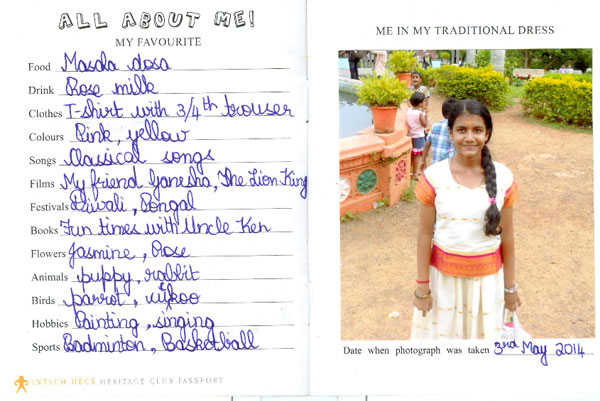 ALL ABOUT ME!
MY FAVOURITE
Food Masala dosa
Drink Rose milk
Clothes T-shirt with 3/4th trouser
Colours Pink, yellow
Songs Classical songs
Films My friend Ganesha, The Lion King
Festivals Diwali, Pongal
Books Fun times with Uncle Ken
Flowers Jasmine, Rose
Animals puppy, rabbit
Birds parrot, cuckoo
Hobbies Painting, singing
Sports Badminton, Basketball
INTACH HECS HERITAGE CLUB PASSPORT
ME IN MY TRADITIONAL DRESS
Date when photograph was taken 3rd May 2014